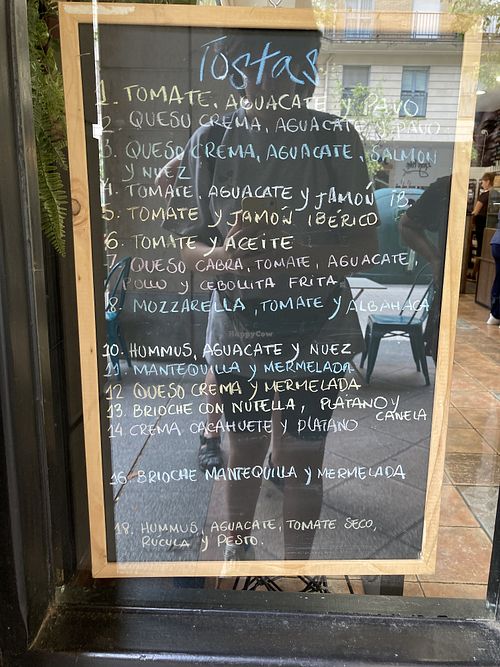 Tostas
1. TOMATE, AGUACATE y PAVO
2. QUESO CREMA, AGUACATE y PAVO
3. QUESO CREMA, AGUACATE, SALMÓN
y NUEZ
4. TOMATE, AGUACATE y JAMÓN IB.
5. TOMATE y JAMÓN IBÉRICO
6. TOMATE y ACEITE
7. QUESO CABRA, TOMATE, AGUACATE
POLLO y CEBOLLITA FRITA.
8. MOZZARELLA, TOMATE y ALBAHACA
HappyCow
10. HUMMUS, AGUACATE y NUEZ
11. MANTEQUILLA y MERMELADA
12 QUESO CREMA y MERMELADA
13. BRIOCHE CON NUTELLA, PLATANO y
CANELA
14 CREMA CACAHUETE y PLATANO
16. BRIOCHE MANTEQUILLA y MERMELADA
18. HUMMUS, AGUACATE, TOMATE SECO,
RUCULA y PESTO.